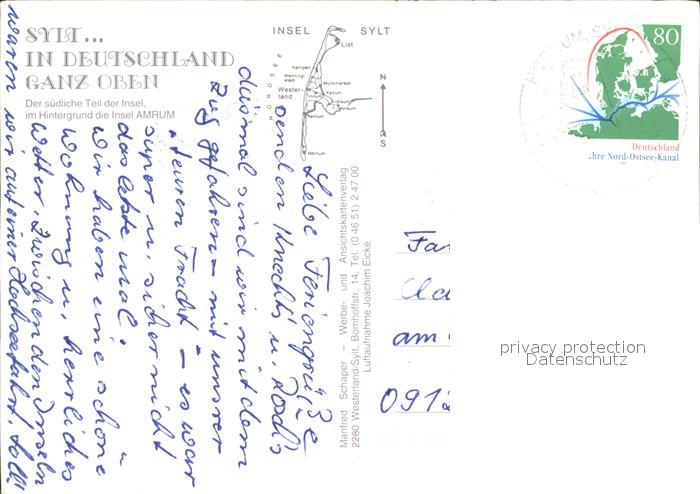 SYLT...
IN DEUTSCHLAND
GANZ OBEN
Der südliche Teil der Insel,
im Hintergrund die Insel AMRUM
INSEL SYLT
NORDSEE
List
Kampen
Wenning-
stedt
Munkmarsch
Wester-
land
Keitum
Morsum
Rantum
Hörnum
N
S
Manfred Schaper – Werbe- und Ansichtskartenverlag
2280 Westerland/Sylt, Bomhoffstr. 14, Tel. (0 46 51) 2 47 00
Luftaufnahme Joachim Eicke
Liebe Feriengrüße
senden Knecht's u.
diesmal sind wir mit dem
Zug gefahren – mit unserer
teuren Fracht – es war
super u. sicher nicht
das letzte mal.
Wir haben eine schöne
Wohnung u. herrliches
Wetter. Zwischen den Inseln
waren wir auf einer Hochseefahrt. Toll!
80
Deutschland
Jahre Nord-Ostsee-Kanal
Fa
am
0912
privacy protection
Datenschutz